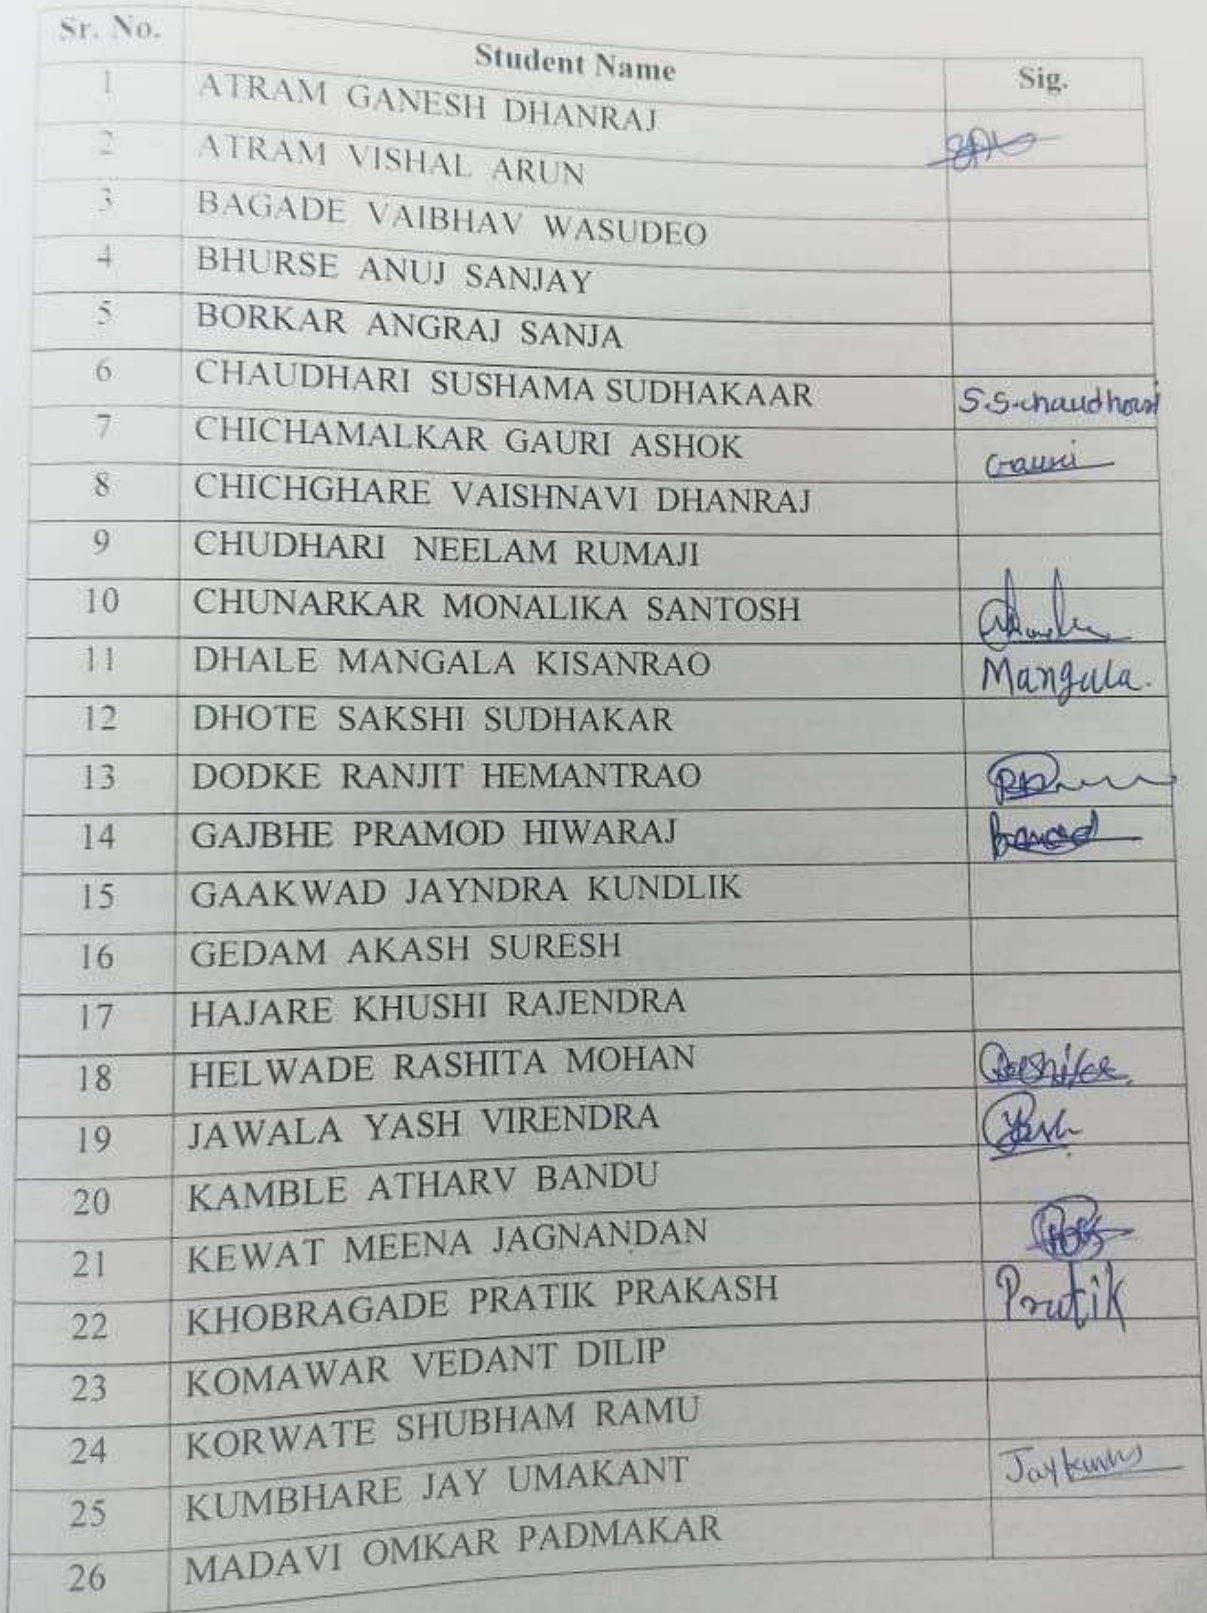 Sr. No. Student Name Sig.
1 ATRAM GANESH DHANRAJ
2 ATRAM VISHAL ARUN
3 BAGADE VAIBHAV WASUDEO
4 BHURSE ANUJ SANJAY
5 BORKAR ANGRAJ SANJA
6 CHAUDHARI SUSHAMA SUDHAKAAR S.S.chaudhari
7 CHICHAMALKAR GAURI ASHOK Gauri
8 CHICHGHARE VAISHNAVI DHANRAJ
9 CHUDHARI NEELAM RUMAJI
10 CHUNARKAR MONALIKA SANTOSH
11 DHALE MANGALA KISANRAO Mangala.
12 DHOTE SAKSHI SUDHAKAR
13 DODKE RANJIT HEMANTRAO
14 GAJBHE PRAMOD HIWARAJ
15 GAAKWAD JAYNDRA KUNDLIK
16 GEDAM AKASH SURESH
17 HAJARE KHUSHI RAJENDRA
18 HELWADE RASHITA MOHAN Rashita
19 JAWALA YASH VIRENDRA Yash
20 KAMBLE ATHARV BANDU
21 KEWAT MEENA JAGNANDAN
22 KHOBRAGADE PRATIK PRAKASH Pratik
23 KOMAWAR VEDANT DILIP
24 KORWATE SHUBHAM RAMU
25 KUMBHARE JAY UMAKANT
26 MADAVI OMKAR PADMAKAR